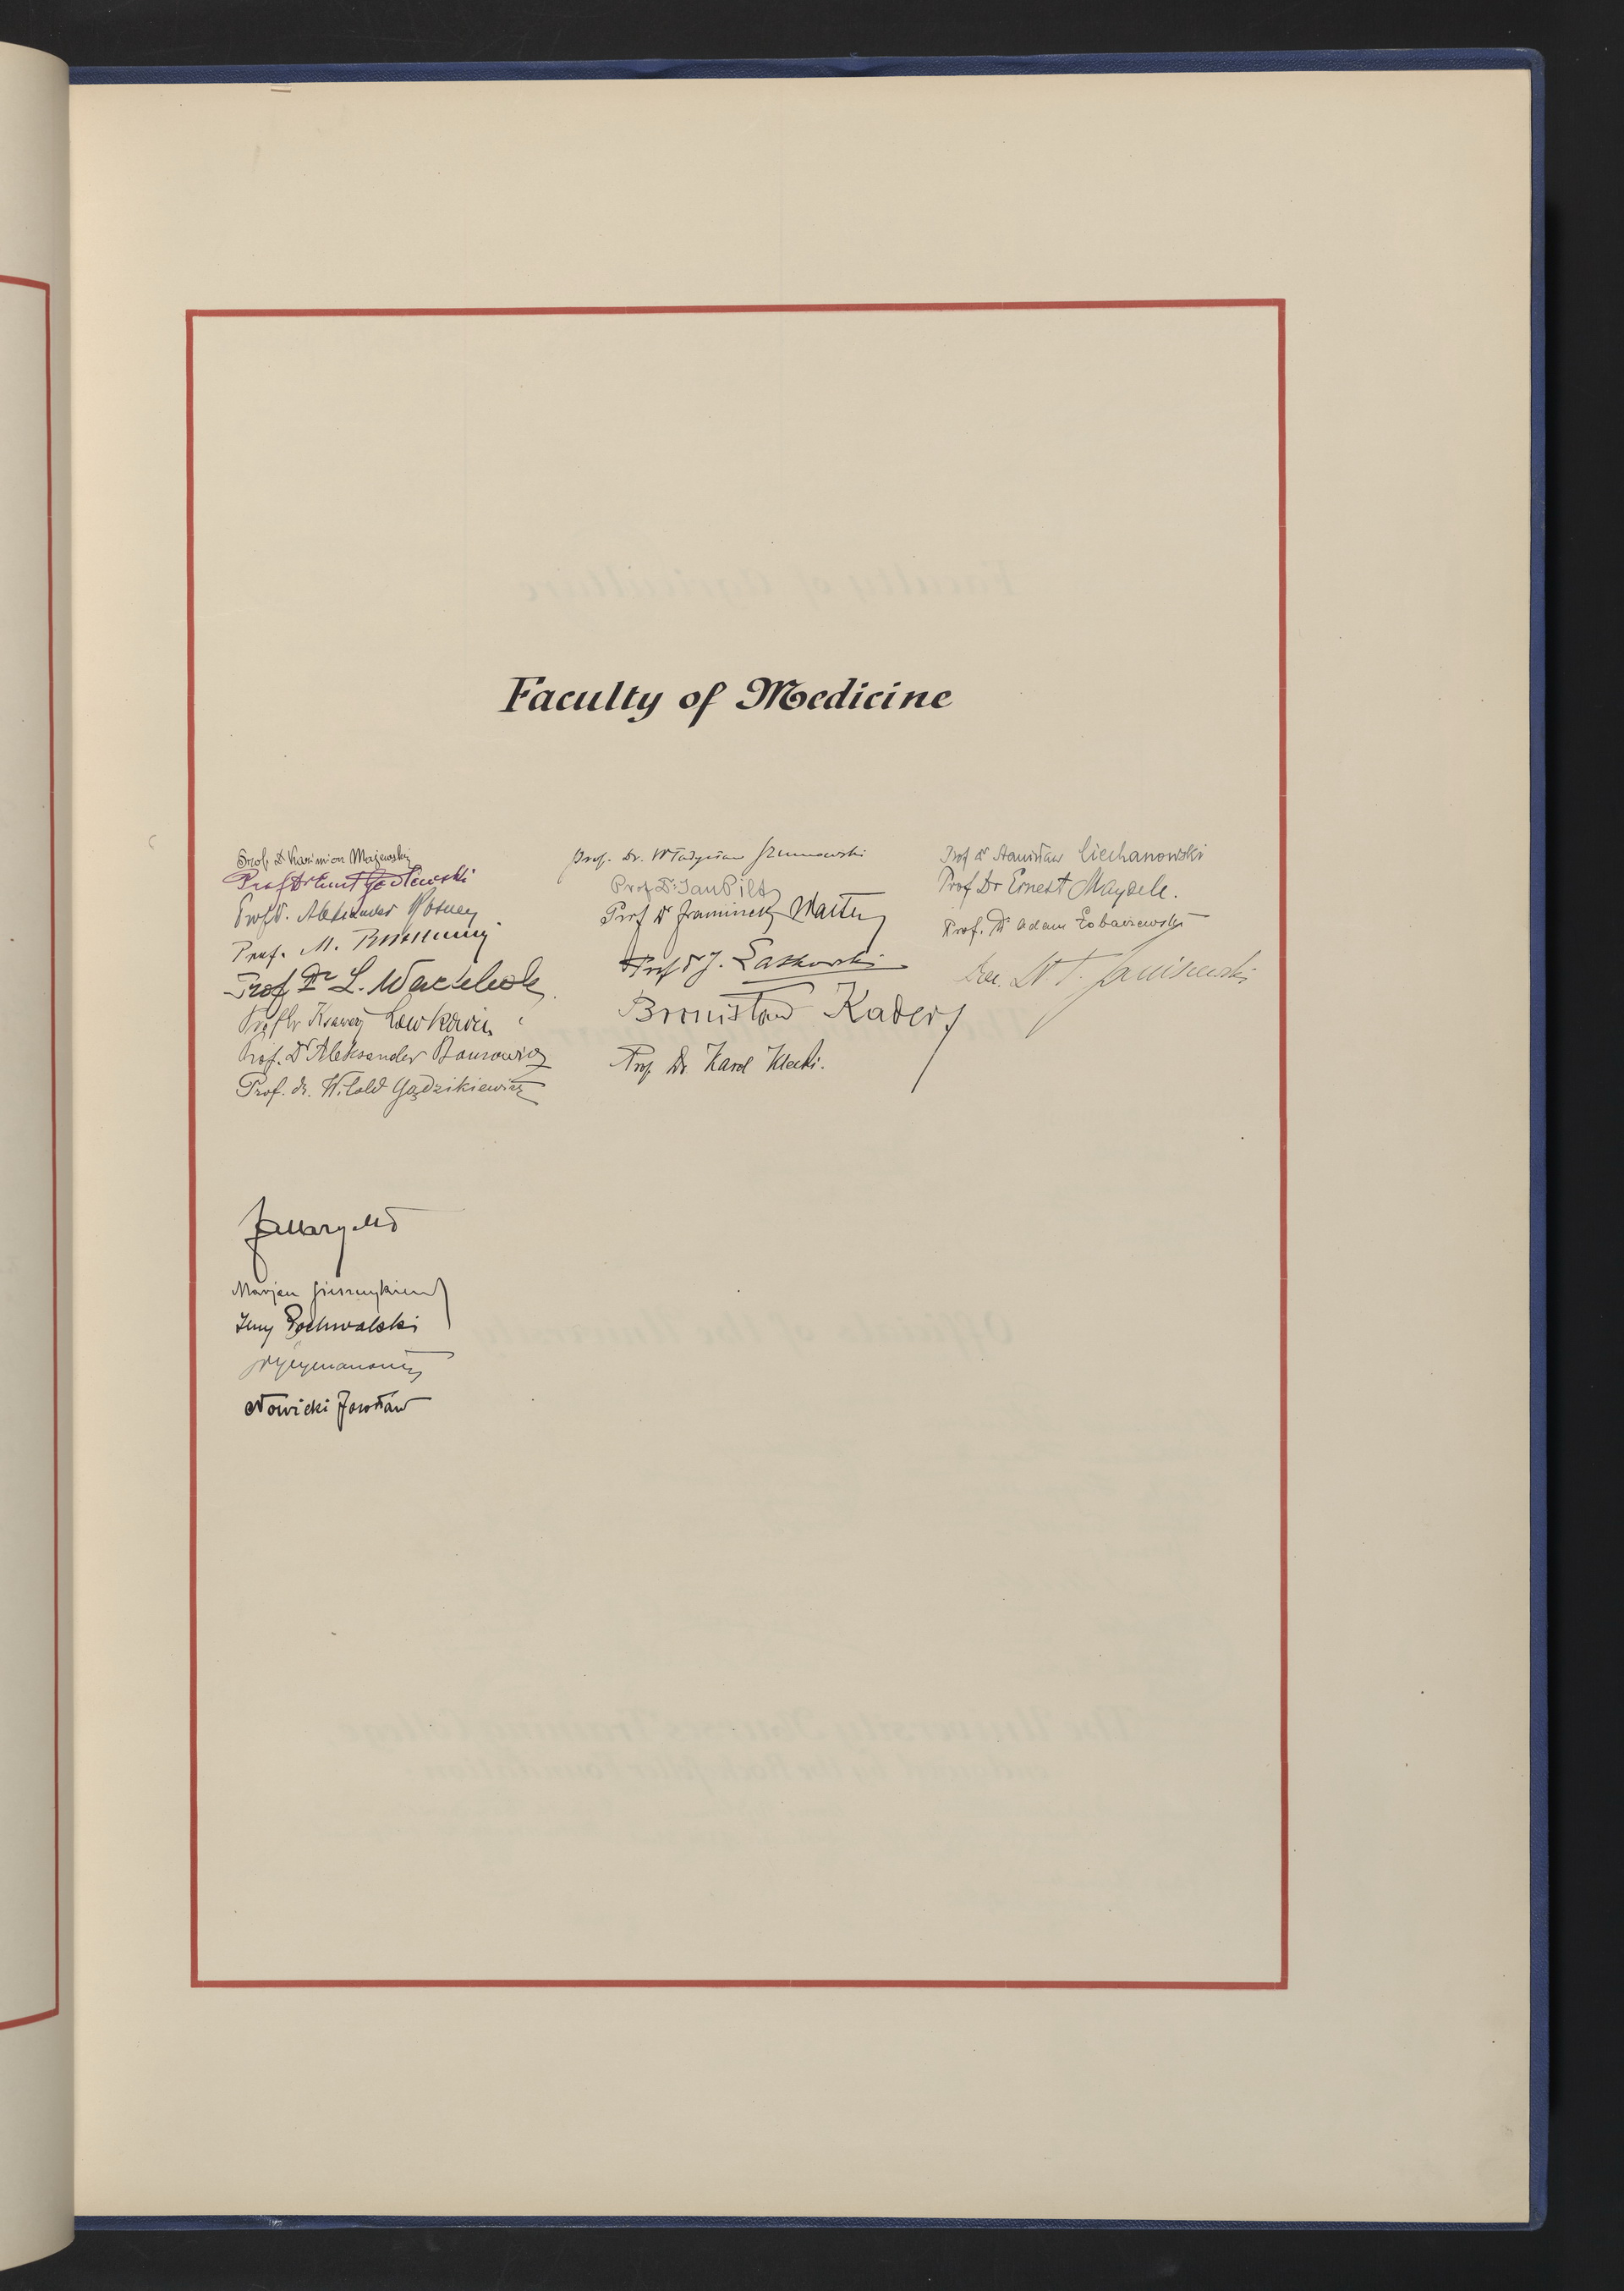 Faculty of Medicine
Prof. Dr Kazimierz Majewski
Prof Dr Emil Godlewski
Prof. Dr. Aleksander
Prof. M.
Prof. Dr L. Wachholz
Prof Dr Ksawery Lewkowicz
Prof. Dr Aleksander Bourowicz
Prof. dr. Witold Gądzikiewicz
Prof. Dr. Władysław Szumowski
Prof Dr Jan Piltz
Prof Dr Franciszek Walter
Prof Dr J. Łazkowski
Bronisław Kader
Prof. Dr. Karol Klecki.
Prof dr Stanisław Ciechanowski
Prof Dr Ernest Maydell.
Prof. Dr Adam Łobaczewski
Dr T. Janiszewski
Marjan
Jerzy Pochwalski
Nowicki Jarosław